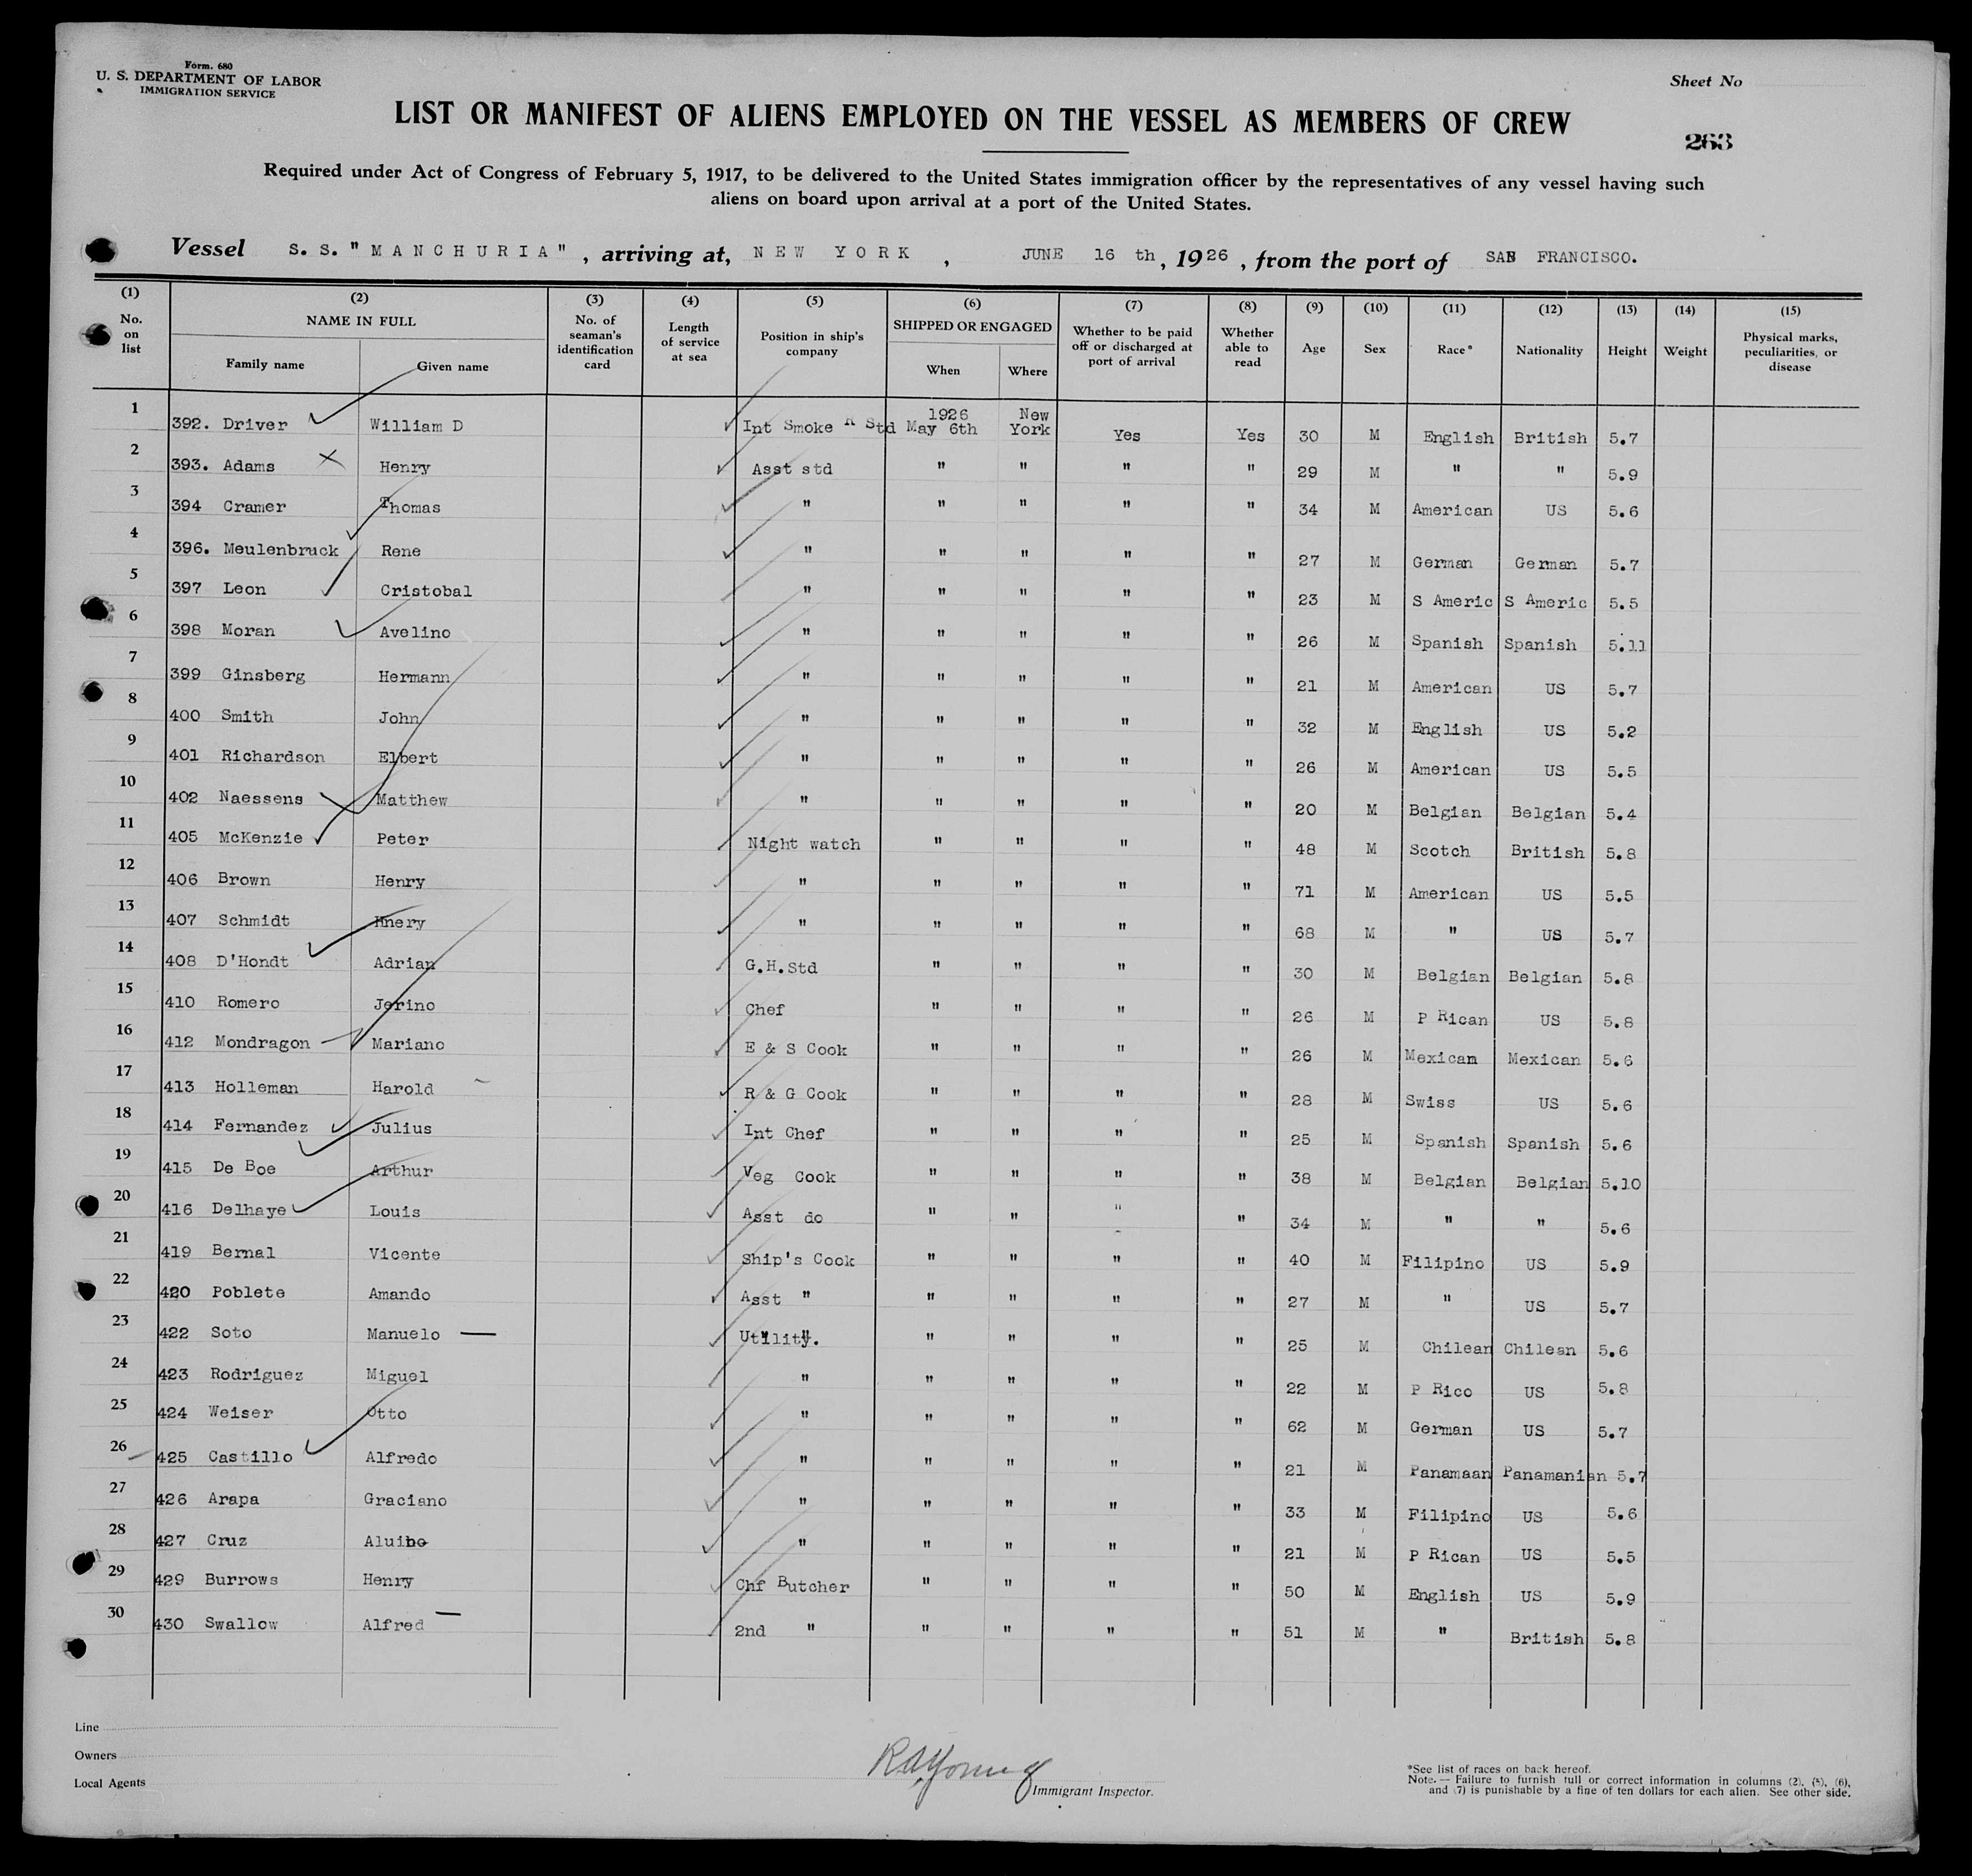 Form. 680
U. S. DEPARTMENT OF LABOR
IMMIGRATION SERVICE
Sheet No
263
LIST OR MANIFEST OF ALIENS EMPLOYED ON THE VESSEL AS MEMBERS OF CREW
Required under Act of Congress of February 5, 1917, to be delivered to the United States immigration officer by the representatives of any vessel having such
aliens on board upon arrival at a port of the United States.
Vessel S. S. "MANCHURIA" , arriving at, NEW YORK , JUNE 16 th, 1926, from the port of SAN FRANCISCO.
(1) No. on list (2) NAME IN FULL Family name Given name (3) No. of seaman's identification card (4) Length of service at sea (5) Position in ship's company (6) SHIPPED OR ENGAGED When Where (7) Whether to be paid off or discharged at port of arrival (8) Whether able to read (9) Age (10) Sex (11) Race* (12) Nationality (13) Height (14) Weight (15) Physical marks, peculiarities, or disease
1 392. Driver William D Int Smoke R Std 1926 May 6th New York Yes Yes 30 M English British 5.7
2 393. Adams Henry Asst std " " " " 29 M " " 5.9
3 394 Cramer Thomas " " " " " 34 M American US 5.6
4 396. Meulenbruck Rene " " " " " 27 M German German 5.7
5 397 Leon Cristobal " " " " " 23 M S Americ S Americ 5.5
6 398 Moran Avelino " " " " " 26 M Spanish Spanish 5.11
7 399 Ginsberg Hermann " " " " " 21 M American US 5.7
8 400 Smith John " " " " " 32 M English US 5.2
9 401 Richardson Elbert " " " " " 26 M American US 5.5
10 402 Naessens Matthew " " " " " 20 M Belgian Belgian 5.4
11 405 McKenzie Peter Night watch " " " " 48 M Scotch British 5.8
12 406 Brown Henry " " " " " 71 M American US 5.5
13 407 Schmidt Hnery " " " " " 68 M " US 5.7
14 408 D'Hondt Adrian G.H.Std " " " " 30 M Belgian Belgian 5.8
15 410 Romero Jerino Chef " " " " 26 M P Rican US 5.8
16 412 Mondragon Mariano E & S Cook " " " " 26 M Mexican Mexican 5.6
17 413 Holleman Harold R & G Cook " " " " 28 M Swiss US 5.6
18 414 Fernandez Julius Int Chef " " " " 25 M Spanish Spanish 5.6
19 415 De Boe Arthur Veg Cook " " " " 38 M Belgian Belgian 5.10
20 416 Delhaye Louis Asst do " " " " 34 M " " 5.6
21 419 Bernal Vicente Ship's Cook " " " " 40 M Filipino US 5.9
22 420 Poblete Amando Asst " " " " " 27 M " US 5.7
23 422 Soto Manuelo Utility. " " " " 25 M Chilean Chilean 5.6
24 423 Rodriguez Miguel " " " " " 22 M P Rico US 5.8
25 424 Weiser Otto " " " " " 62 M German US 5.7
26 425 Castillo Alfredo " " " " " 21 M Panamaan Panamanian 5.7
27 426 Arapa Graciano " " " " " 33 M Filipino US 5.6
28 427 Cruz " " " " " 21 M P Rican US 5.5
29 429 Burrows Henry Chf Butcher " " " " 50 M English US 5.9
30 430 Swallow Alfred 2nd " " " " " 51 M " British 5.8
Line
Owners
Local Agents
Immigrant Inspector.
*See list of races on back hereof.
Note.— Failure to furnish full or correct information in columns (2), (5), (6),
and (7) is punishable by a fine of ten dollars for each alien. See other side.